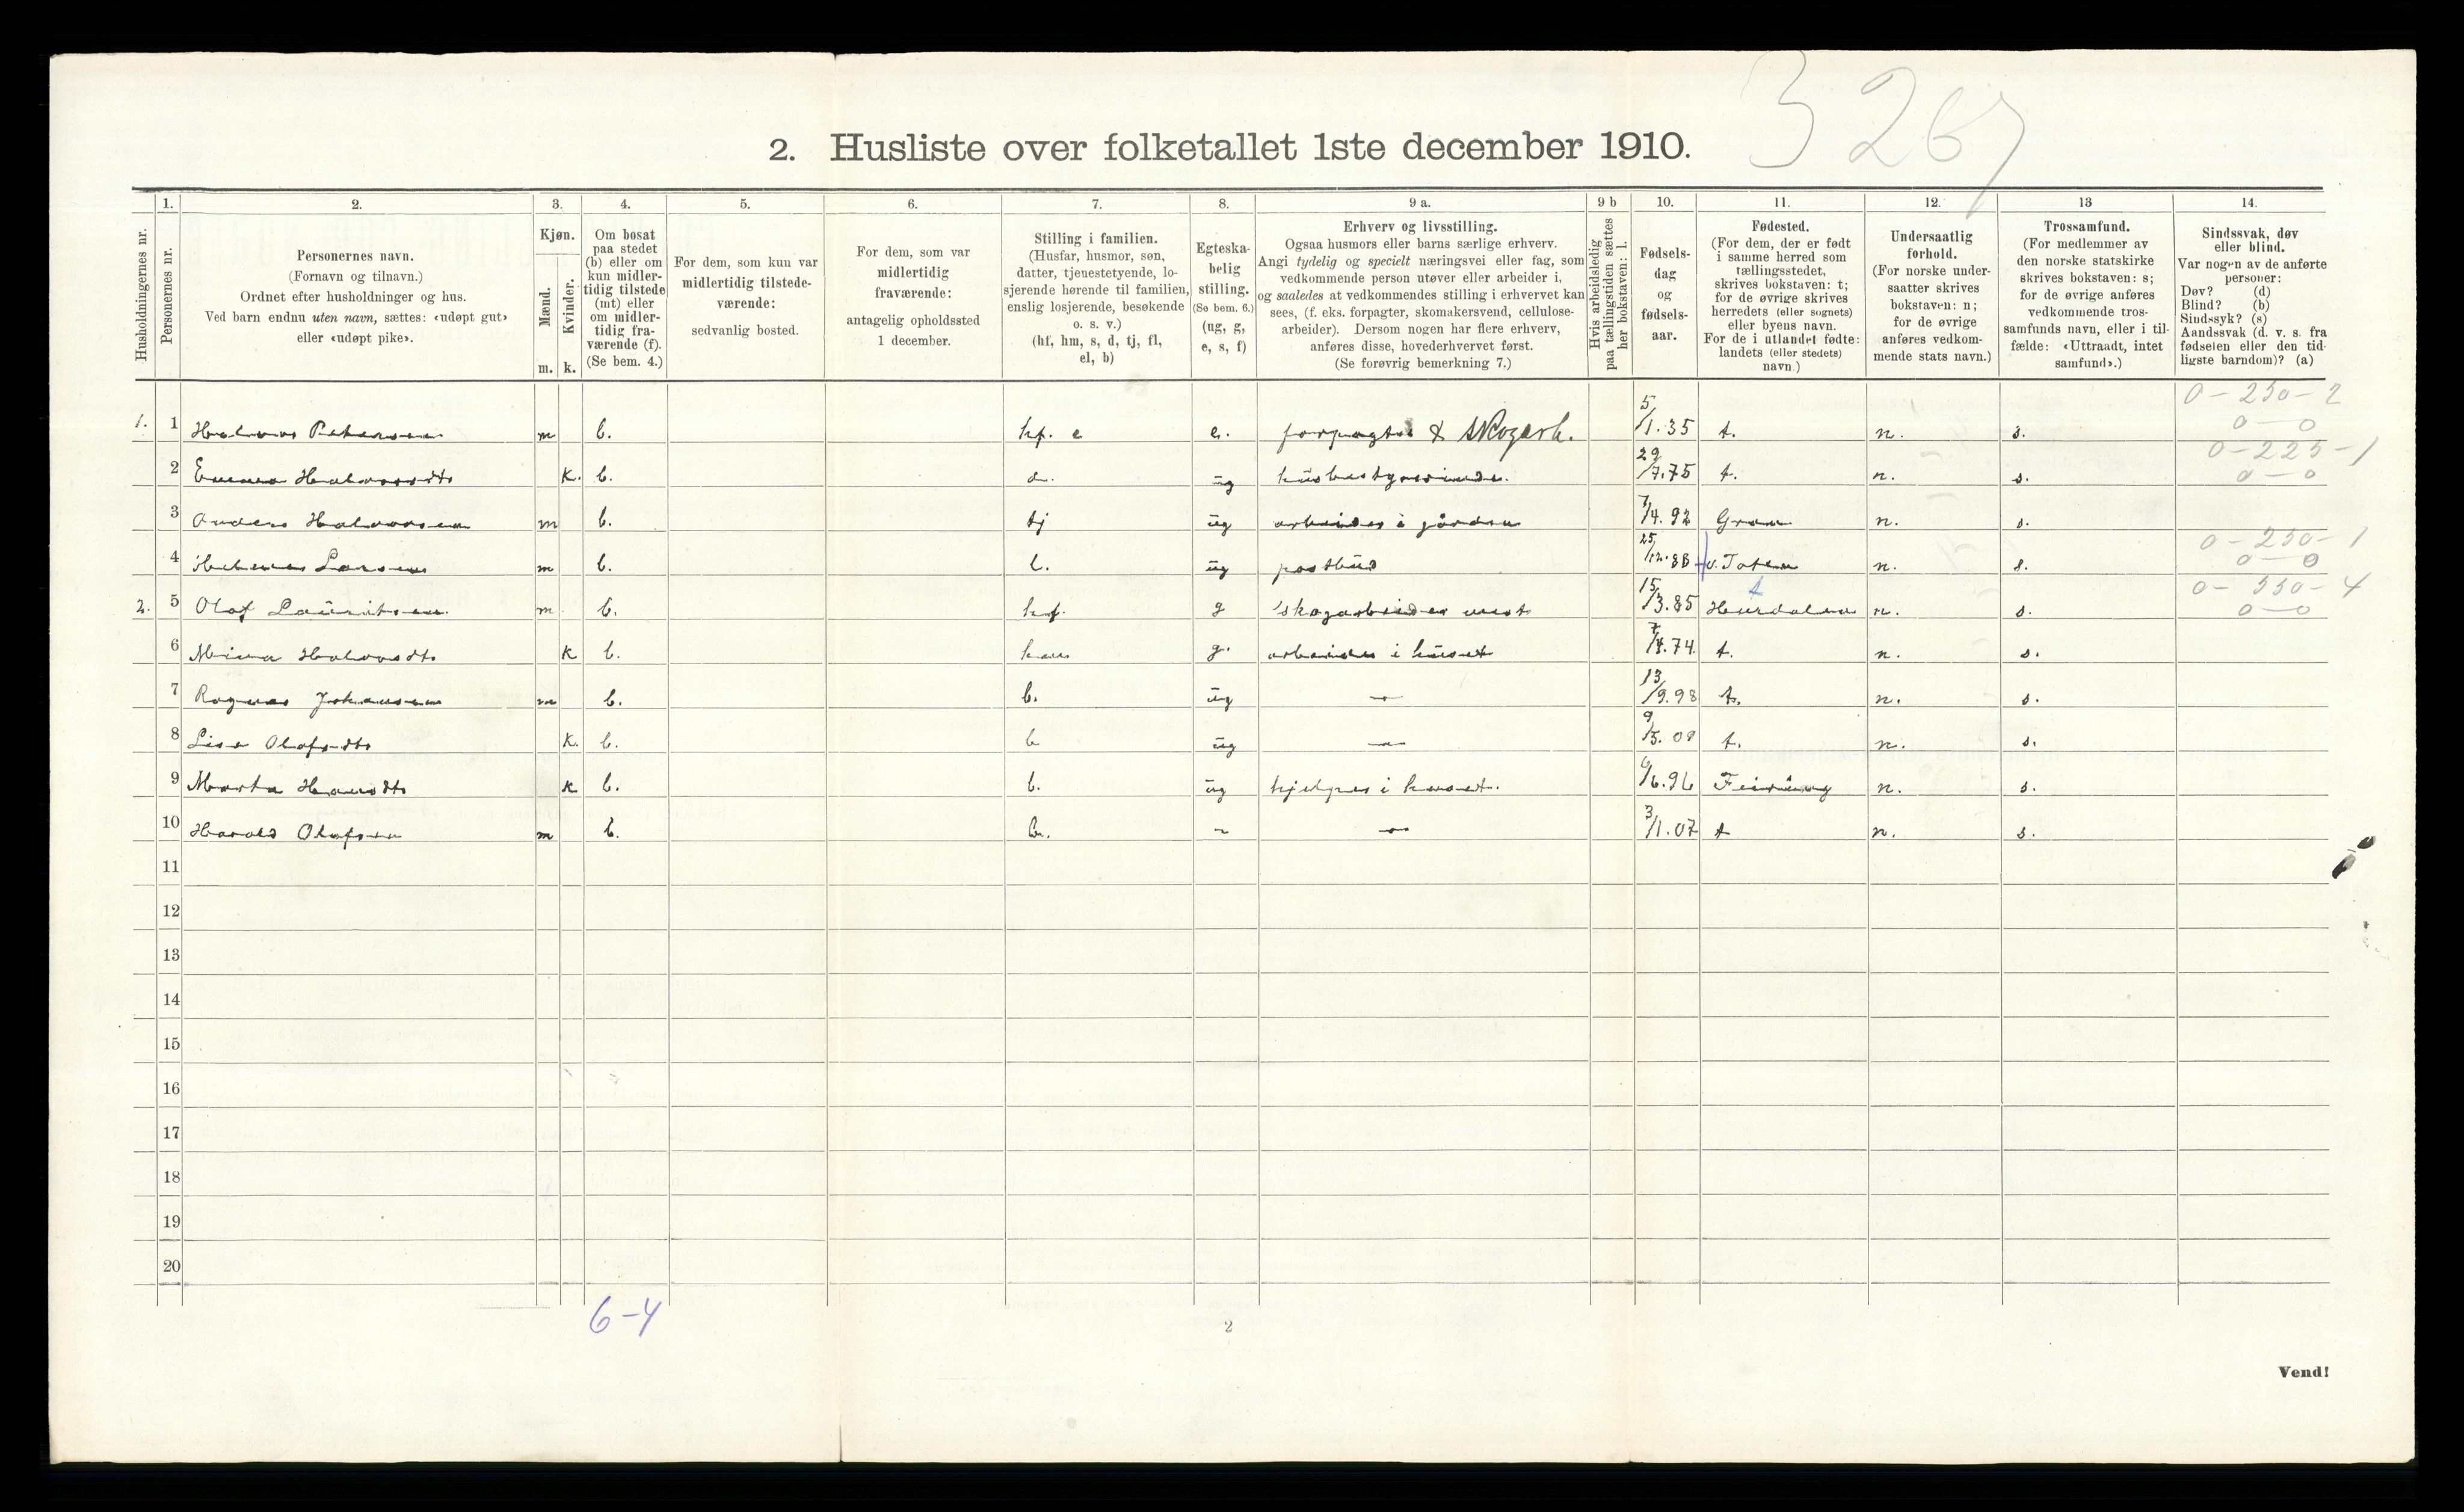 3267
2. Husliste over folketallet 1ste december 1910.
Husholdningernes nr.
1. Personernes nr.
2. Personernes navn.
(Fornavn og tilnavn.)
Ordnet efter husholdninger og hus.
Ved barn endnu uten navn, sættes: «udøpt gut»
eller «udøpt pike».
3. Kjøn.
Mænd. m.
Kvinder. k.
4. Om bosat
paa stedet
(b) eller om
kun midler-
tidig tilstede
(mt) eller
om midler-
tidig fra-
værende (f).
(Se bem. 4.)
5. For dem, som kun var
midlertidig tilstede-
værende:
sedvanlig bosted.
6. For dem, som var
midlertidig
fraværende:
antagelig opholdssted
1 december.
7. Stilling i familien.
(Husfar, husmor, søn,
datter, tjenestetyende, lo-
sjerende hørende til familien,
enslig losjerende, besøkende
o. s. v.)
(hf, hm, s, d, tj, fl,
el, b)
8. Egteska-
belig
stilling.
(Se bem. 6.)
(ug, g,
e, s, f)
9 a. Erhverv og livsstilling.
Ogsaa husmors eller barns særlige erhverv.
Angi tydelig og specielt næringsvei eller fag, som
vedkommende person utøver eller arbeider i,
og saaledes at vedkommendes stilling i erhvervet kan
sees, (f. eks. forpagter, skomakersvend, cellulose-
arbeider). Dersom nogen har flere erhverv,
anføres disse, hovederhvervet først.
(Se forøvrig bemerkning 7.)
9 b Hvis arbeidsledig
paa tællingstiden sættes
her bokstaven: l.
10. Fødsels-
dag
og
fødsels-
aar.
11. Fødested.
(For dem, der er født
i samme herred som
tællingsstedet,
skrives bokstaven: t;
for de øvrige skrives
herredets (eller sognets)
eller byens navn.
For de i utlandet fødte:
landets (eller stedets)
navn.)
12. Undersaatlig
forhold.
(For norske under-
saatter skrives
bokstaven: n;
for de øvrige
anføres vedkom-
mende stats navn.)
13 Trossamfund.
(For medlemmer av
den norske statskirke
skrives bokstaven: s;
for de øvrige anføres
vedkommende tros-
samfunds navn, eller i til-
fælde: «Uttraadt, intet
samfund».)
14. Sindssvak, døv
eller blind.
Var nogen av de anførte
personer:
Døv? (d)
Blind? (b)
Sindssyk? (s)
Aandssvak (d. v. s. fra
fødselen eller den tid-
ligste barndom)? (a)
1. 1 Halvor Petersen m b. hf. e e. forpagter & skogarb. 5/1.35 t. n. s. 0-250-2 0-0
2 Emma Halvorsdtr k. b. d. ug husbestyrerinde. 29/7.75 t. n. s. 0-225-1 0-0
3 Anders Halvorsen m b. tj ug arbeider i gården 7/4.92 Gran n. s.
4 Larsen m b. l. ug postbud 25/12.88 v. Toten n. s. 0-250-1 0-0
2. 5 Olaf Lauritsen m b. hf. g skogarbeider 15/3.85 Hurdalen n. s. 0-550-4 0-0
6 Mina Halvorsdtr k b. g. arbeider i huset 7/4.74 t. n. s.
7 Ragnar Johansen m b. b. ug — 13/9.98 t. n. s.
8 Lise Olafsdtr k. b. b ug — 9/5. t. n. s.
9 Marta Hansdtr k b. b. ug hjelper i huset. 6/6.96 Feiring n. s.
10 Harald Olafsen m b. b. — — 3/1.07 t n. s.
11
12
13
14
15
16
17
18
19
20
6-4
2
Vend!